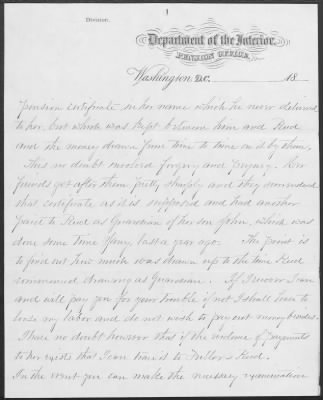 1
Division.
Department of the Interior,
PENSION OFFICE,
Washington, D.C. 18
pension certificate in her name which he never delivered
to her, but which was kept between him and Reed
and the money drawn from time to time on it by them.
This no doubt involved forgery and perjury. Her
friends got after them pretty sharply and they surrendered
that certificate as it is supposed and had another
paid to Reed as Guardian of her son John, which was
done some time I fancy, last a year ago. The point is
to find out how much was drawn up to the time Reed
commenced drawing as Guardian. If I recover I can
and will pay you for your trouble if not I shall have to
lose my labor and do not wish to pay out money besides.
I have no doubt however that if the evidence of payments
to her exists that I can trace it to Fuller & Reed.
In the event you can make the necessary examination